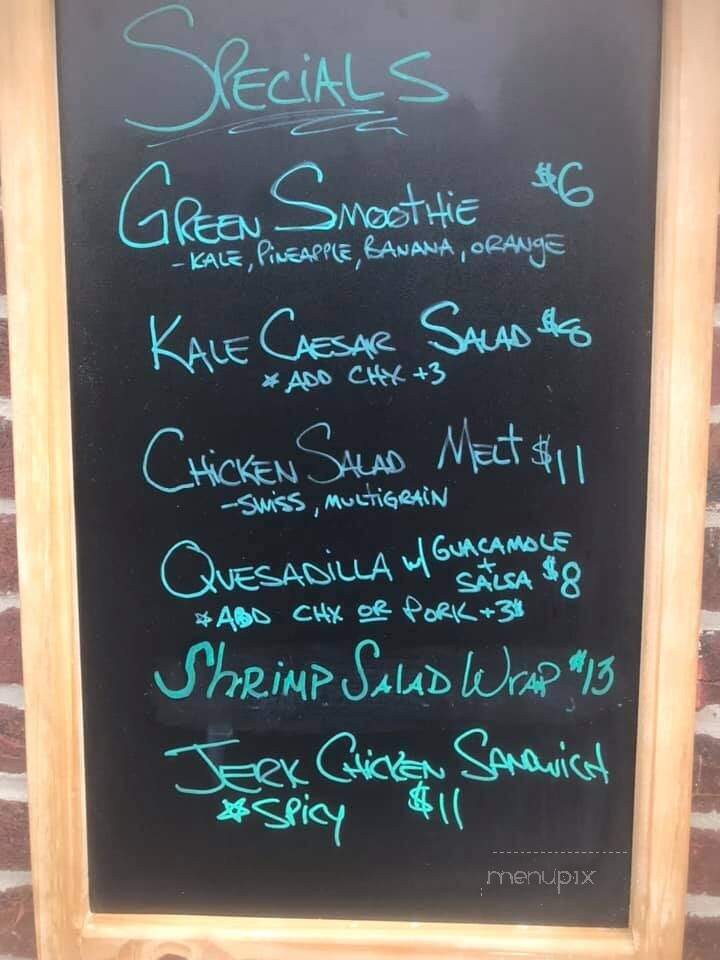 SPECIALS
GREEN SMOOTHIE $6
-KALE, PINEAPPLE, BANANA, ORANGE
KALE CAESAR SALAD $8
* ADD CHX +3
CHICKEN SALAD MELT $11
-SWISS, MULTIGRAIN
QUESADILLA w/ GUACAMOLE + SALSA $8
* ADD CHX OR PORK +3$
SHRIMP SALAD WRAP $13
JERK CHICKEN SANDWICH
* SPICY $11
menupix